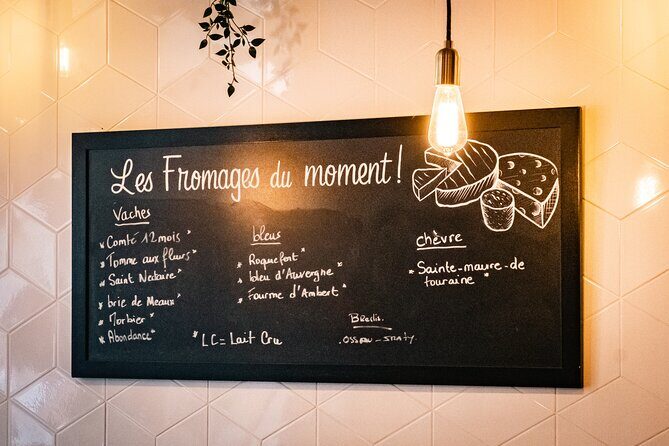 Les Fromages du moment !
Vaches
* Comté 12 mois *
* Tomme aux fleurs *
* Saint Nectaire *
* brie de Meaux *
* Morbier *
* Abondance *
bleus
* Roquefort *
* bleu d'Auvergne *
* Fourme d'Ambert *
* LC = Lait Cru
chèvre
* Sainte-maure-de
touraine *
Brebis.
. OSSAU - IRATY.